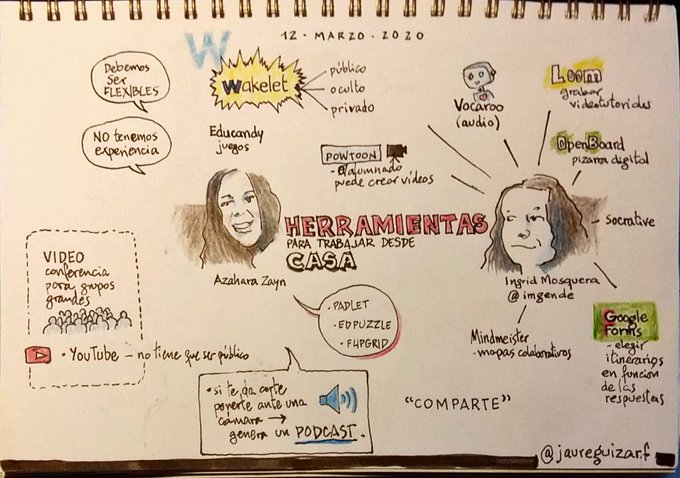 12 · MARZO · 2020
Debemos
SER
FLEXIBLES
NO tenemos
experiencia
W
Wakelet
público
oculto
privado
Educandy
juegos
POWTOON
- alumnado
puede crear vídeos
Vocaroo
(audio)
Loom
grabar
videotutoriales
OpenBoard
pizarra digital
Socrative
HERRAMIENTAS
PARA TRABAJAR DESDE
CASA
Azahara Zayn
Ingrid Mosquera
@imgende
VIDEO
conferencia
para grupos
grandes
· YouTube — no tiene que ser público
· PADLET
· EDPUZZLE
· FLIPGRID
Mindmeister
- mapas colaborativos
Google
Forms
- elegir
itinerarios
en función
de las
respuestas
· si te da corte
ponerte ante una
cámara →
genera un PODCAST.
"COMPARTE"
@jaureguizar.f